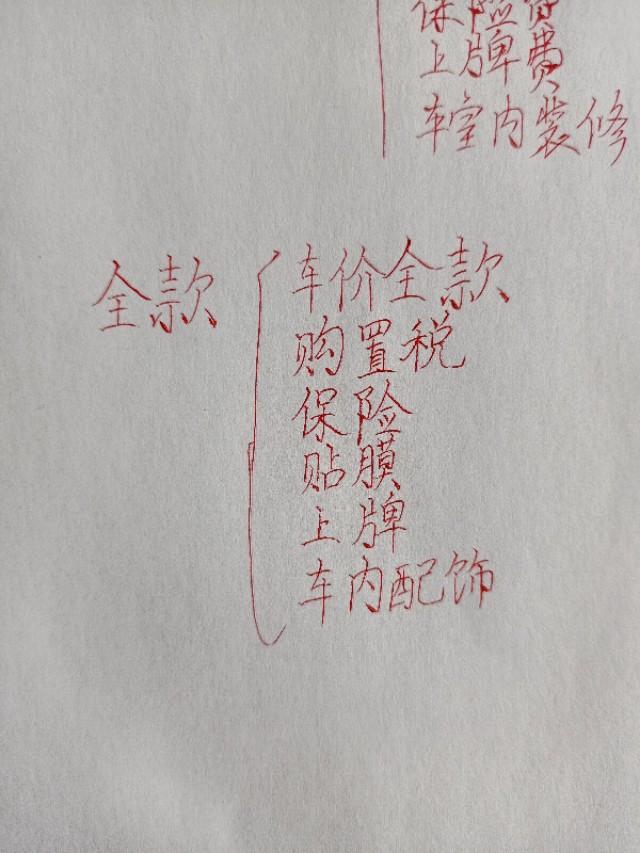 保险费
上牌费
车室内装修
全款
车价全款
购置税
保险
贴膜
上牌
车内配饰